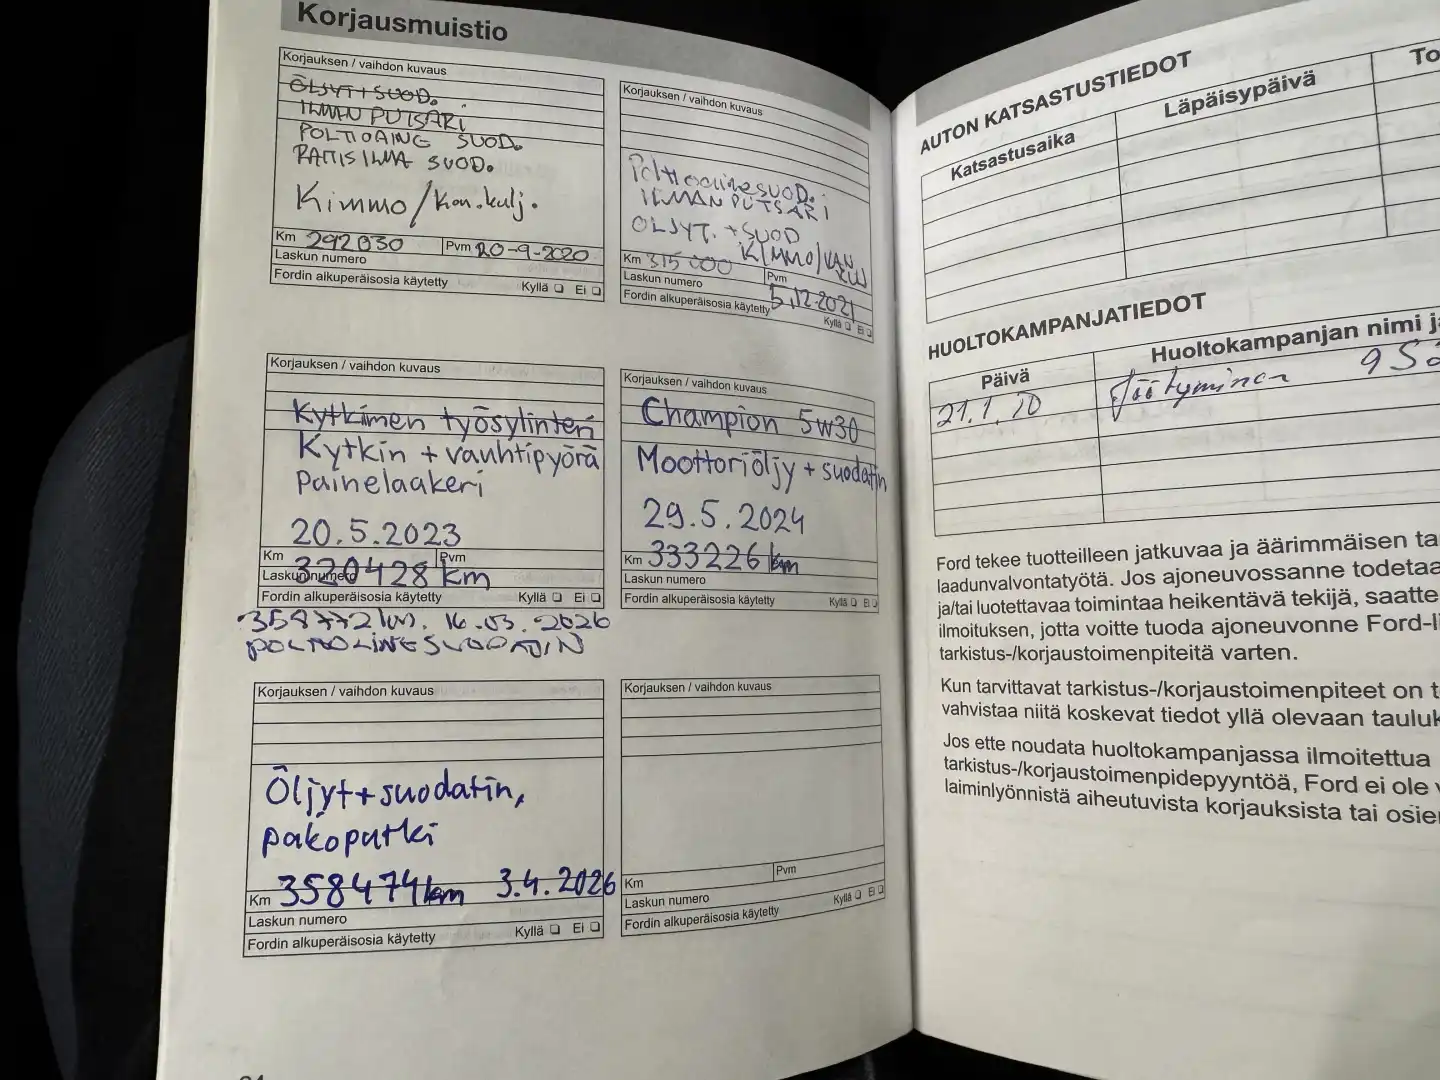 Korjausmuistio
Korjauksen / vaihdon kuvaus
ÖLJYT+SUOD.
ILMAN PUTSARI
POLTTOAINE SUOD.
RAITISILMA SUOD.
Kimmo/Kon.kulj.
Km 292030 Pvm 20-9-2020
Laskun numero
Fordin alkuperäisosia käytetty Kyllä ❑ Ei ❑
Korjauksen / vaihdon kuvaus
PolttoainesuoD.
ILMAN PUTSARI
ÖLJYT. + SUOD
KIMMO/
Km 315000 Pvm
Laskun numero 5.12.2021
Fordin alkuperäisosia käytetty Kyllä ❑ Ei ❑
Korjauksen / vaihdon kuvaus
Kytkimen työsylinteri
Kytkin + vauhtipyörä
Painelaakeri
20.5.2023
Km Pvm
320428 km
Laskun numero
Fordin alkuperäisosia käytetty Kyllä ❑ Ei ❑
Korjauksen / vaihdon kuvaus
Champion 5w30
Moottoriöljy + suodatin
29.5.2024
Km 333226 km
Laskun numero
Fordin alkuperäisosia käytetty Kyllä ❑ Ei ❑
16.03.2026
Korjauksen / vaihdon kuvaus
Öljyt+suodatin,
pakoputki
Km 358474km 3.4.2026
Laskun numero
Fordin alkuperäisosia käytetty Kyllä ❑ Ei ❑
Korjauksen / vaihdon kuvaus
Km Pvm
Laskun numero
Fordin alkuperäisosia käytetty Kyllä ❑ Ei ❑
AUTON KATSASTUSTIEDOT
Katsastusaika Läpäisypäivä To
HUOLTOKAMPANJATIEDOT
Päivä Huoltokampanjan nimi j
21.1.10 Jäätyminen
Ford tekee tuotteilleen jatkuvaa ja äärimmäisen ta
laadunvalvontatyötä. Jos ajoneuvossanne todetaa
ja/tai luotettavaa toimintaa heikentävä tekijä, saatte
ilmoituksen, jotta voitte tuoda ajoneuvonne Ford-li
tarkistus-/korjaustoimenpiteitä varten.
Kun tarvittavat tarkistus-/korjaustoimenpiteet on t
vahvistaa niitä koskevat tiedot yllä olevaan tauluk
Jos ette noudata huoltokampanjassa ilmoitettua
tarkistus-/korjaustoimenpidepyyntöä, Ford ei ole
laiminlyönnistä aiheutuvista korjauksista tai osien